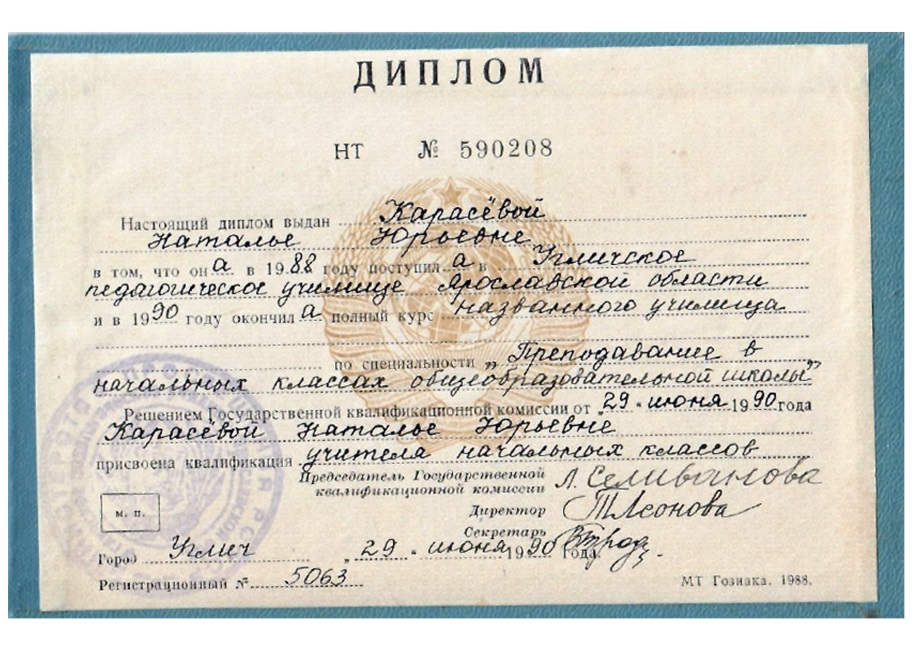 ДИПЛОМ
НТ № 590208
Настоящий диплом выдан Карасёвой
Наталье Юрьевне
в том, что она в 1988 году поступила в Угличское
педагогическое училище Ярославской области
и в 1990 году окончила полный курс названного училища
по специальности „Преподавание в
начальных классах общеобразовательной школы"
Решением Государственной квалификационной комиссии от „29" июня 1990 года
Карасёвой Наталье Юрьевне
присвоена квалификация учителя начальных классов
Председатель Государственной
квалификационной комиссии Л. Селиванова
м. п.
Директор
Секретарь
Город Углич „29" июня 1990 года.
Регистрационный № 5063
МТ Гознака. 1988.